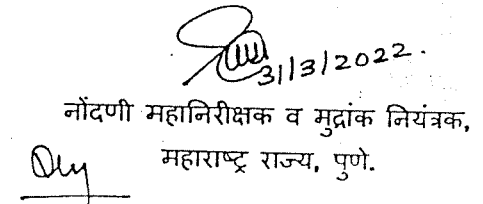 31/3/2022.
नोंदणी महानिरीक्षक व मुद्रांक नियंत्रक,
महाराष्ट्र राज्य, पुणे.